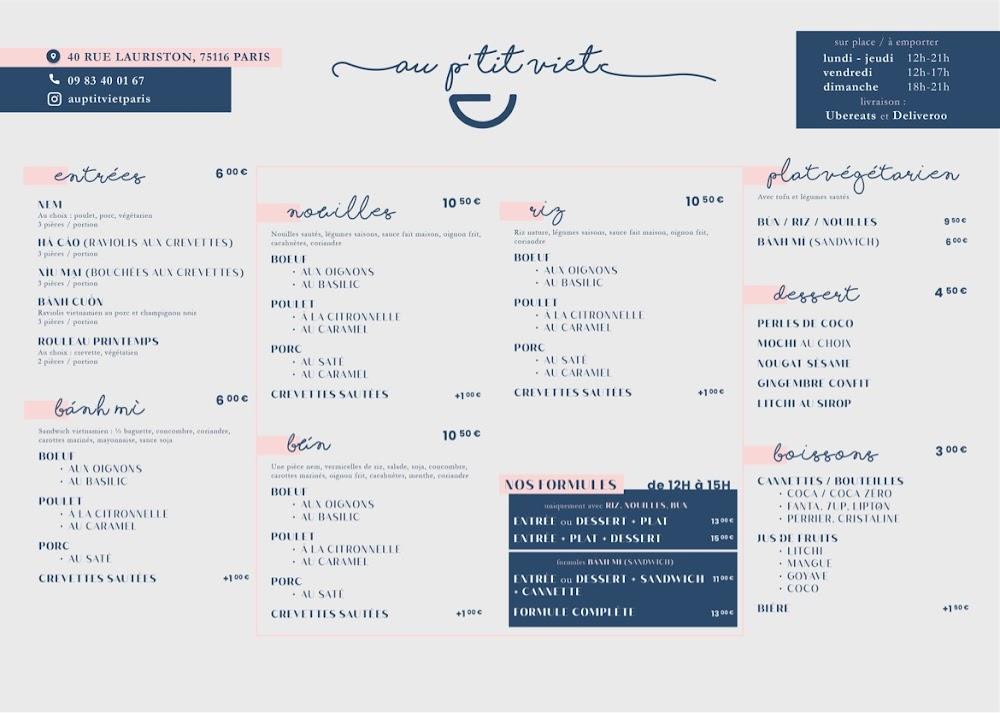 40 RUE LAURISTON, 75116 PARIS
09 83 40 01 67
auptitvietparis
au p'tit viet
sur place / à emporter
lundi - jeudi 12h-21h
vendredi 12h-17h
dimanche 18h-21h
livraison :
Ubereats et Deliveroo
entrées 6 00 €
NEM
Au choix : poulet, porc, végétarien
3 pièces / portion
HÁ CẢO (RAVIOLIS AUX CREVETTES)
3 pièces / portion
XÍU MAI (BOUCHÉES AUX CREVETTES)
3 pièces / portion
BÁNH CUÓN
Raviolis vietnamien au porc et champignon noir
3 pièces / portion
ROULEAU PRINTEMPS
Au choix : crevette, végétatien
2 pièces / portion
bánh mì 6 00 €
Sandwich vietnamien : ½ baguette, concombre, coriandre,
carottes marinés, mayonnaise, sauce soja
BOEUF
· AUX OIGNONS
· AU BASILIC
POULET
· À LA CITRONNELLE
· AU CARAMEL
PORC
· AU SATÉ
CREVETTES SAUTÉES +1 00 €
nouilles 10 50 €
Nouilles sautés, légumes saisons, sauce fait maison, oignon frit,
cacahuètes, coriandre
BOEUF
· AUX OIGNONS
· AU BASILIC
POULET
· À LA CITRONNELLE
· AU CARAMEL
PORC
· AU SATÉ
· AU CARAMEL
CREVETTES SAUTÉES +1 00 €
bún 10 50 €
Une pièce nem, vermicelles de riz, salade, soja, concombre,
carottes marinés, oignon frit, cacahuètes, menthe, coriandre
BOEUF
· AUX OIGNONS
· AU BASILIC
POULET
· À LA CITRONNELLE
· AU CARAMEL
PORC
· AU SATÉ
CREVETTES SAUTÉES +1 00 €
riz 10 50 €
Riz nature, légumes saisons, sauce fait maison, oignon frit,
coriandre
BOEUF
· AUX OIGNONS
· AU BASILIC
POULET
· À LA CITRONNELLE
· AU CARAMEL
PORC
· AU SATÉ
· AU CARAMEL
CREVETTES SAUTÉES +1 00 €
NOS FORMULES de 12H à 15H
uniquement avec RIZ, NOUILLES, BUN
ENTRÉE ou DESSERT + PLAT 13 00 €
ENTRÉE + PLAT + DESSERT 15 00 €
formules BANH MI (SANDWICH)
ENTRÉE ou DESSERT + SANDWICH 11 00 €
+ CANNETTE
FORMULE COMPLÈTE 13 00 €
plat végétarien
Avec tofu et légumes sautés
BUN / RIZ / NOUILLES 9 50 €
BÁNH MÌ (SANDWICH) 6 00 €
dessert 4 50 €
PERLES DE COCO
MOCHI AU CHOIX
NOUGAT SÉSAME
GINGEMBRE CONFIT
LITCHI AU SIROP
boissons 3 00 €
CANNETTES / BOUTEILLES
· COCA / COCA ZERO
· FANTA, 7UP, LIPTON
· PERRIER, CRISTALINE
JUS DE FRUITS
· LITCHI
· MANGUE
· GOYAVE
· COCO
BIÈRE +1 50 €